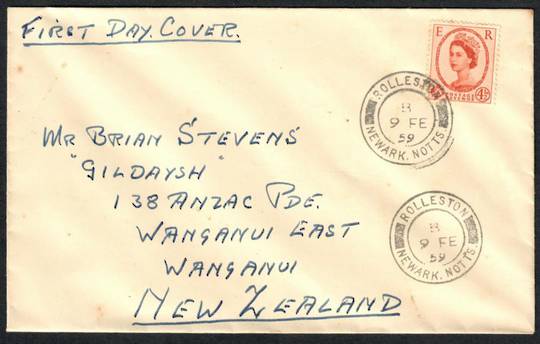 FIRST DAY COVER.
E R
POSTAGE REVENUE
4½D
ROLLESTON
B
9 FE
59
NEWARK. NOTTS
MR BRIAN STEVENS
"GILDAYSH"
138 ANZAC PDE.
WANGANUI EAST
WANGANUI
NEW ZEALAND
ROLLESTON
B
9 FE
59
NEWARK. NOTTS